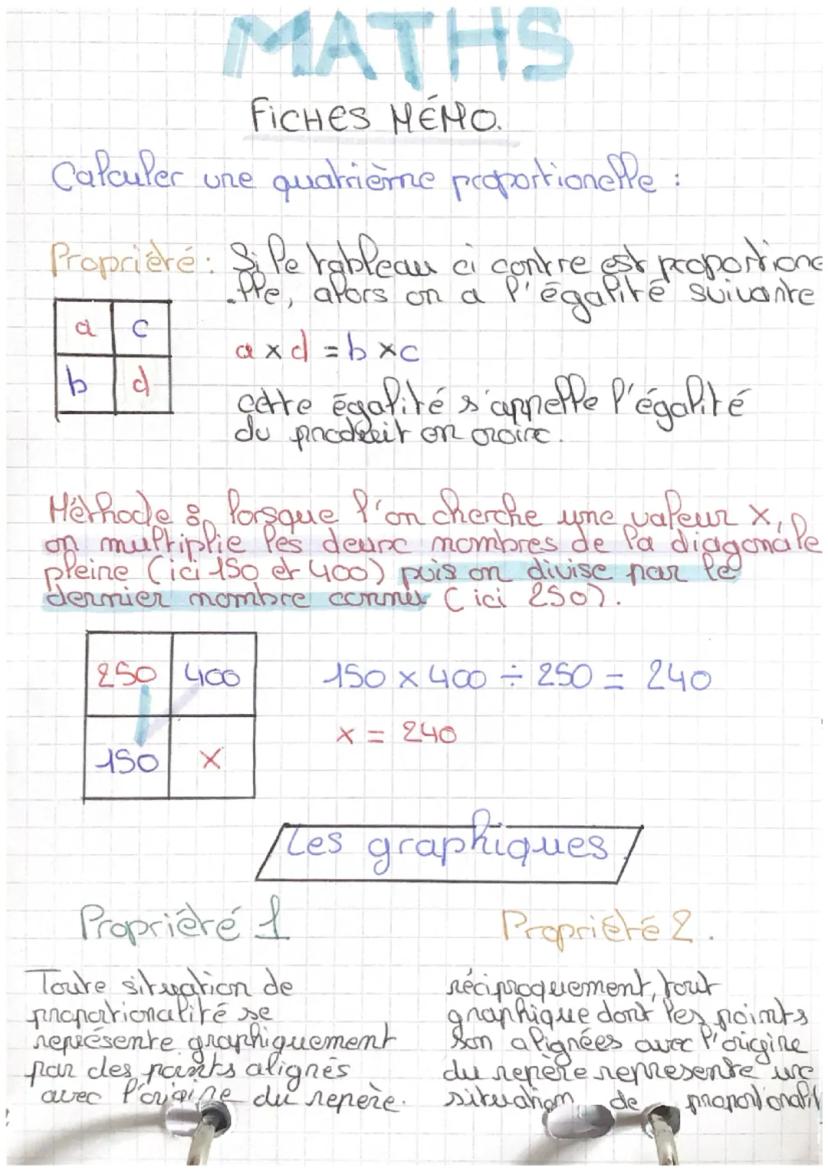 MATHS
FICHES MÉMO.
Calculer une quatrième proportionelle :
Propriété : Si le tableau ci contre est proportione
-lle, alors on a l'égalité suivante
a c
b d
a x d = b x c
cette égalité s'appelle l'égalité
du produit en croix.
Méthode : lorsque l'on cherche une valeur x,
on multiplie les deux nombres de la diagonale
pleine (ici 150 et 400) puis on divise par le
dernier nombre connu (ici 250).
250 400
150 x
150 x 400 ÷ 250 = 240
x = 240
Les graphiques
Propriété 1
Toute situation de
proportionalité se
représente graphiquement
par des points alignés
avec l'origine du repère.
Propriété 2.
réciproquement, tout
graphique dont les points
son alignées avec l'origine
du repère represente une
situation de proportionalit